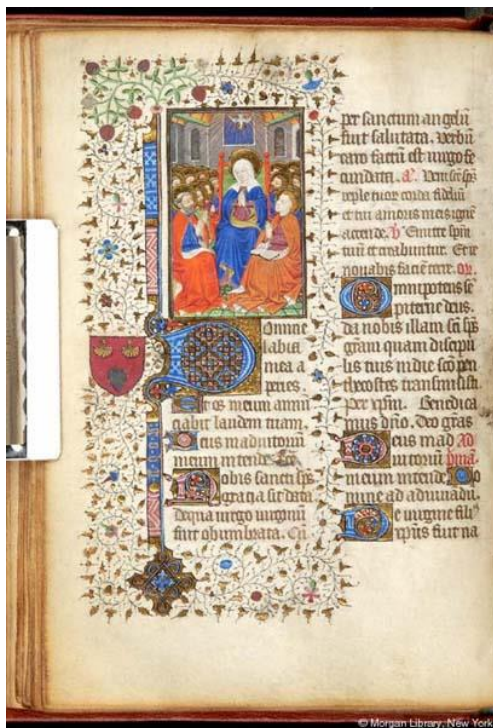 Domine
labia
mea a
peries.
Et os meum annu
ciabit laudem tuam.
Deus in adiutorium
meum intende. Glo
Nobis sancti sps
gracia sit data
de qua virgo virginū
fuit obumbrata. Cū
per sanctum angelū
fuit salutata. verbū
caro factū est virgo fe
cundata. a. Veni scē sps
reple tuor corda fideliū
et tui amoris in eis ignē
accende. v Emitte spm
tuū et creabuntur. Et re
novabis faciē terre. or.
Omnipotens se
piterne deus.
da nobis illam scī sps
grām quam discipu
lis tuis in die scō pen
thecostes transmisisti.
Per xpm. Benedica
mus dño. Deo grās
Deus in ad Ad
iutoriū pmā.
meum intende. Do
mine ad adiuvādū.
De virgine filī
xpus fuit na
© Morgan Library, New York